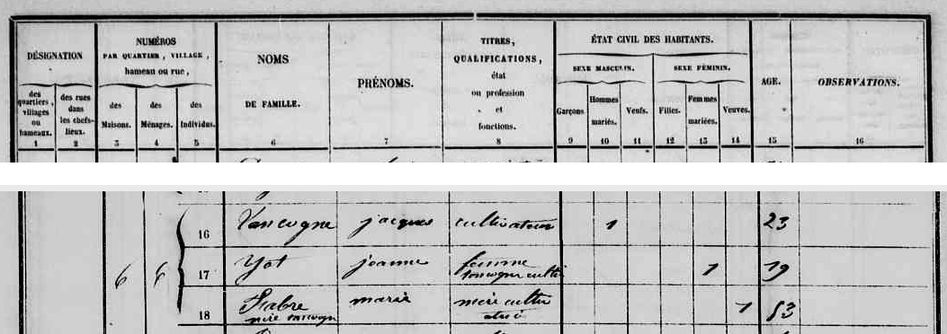 DÉSIGNATION
NUMÉROS
PAR QUARTIER, VILLAGE,
hameau ou rue,
NOMS
DE FAMILLE.
PRÉNOMS.
TITRES,
QUALIFICATIONS,
état
ou profession
et
fonctions.
ÉTAT CIVIL DES HABITANTS.
SEXE MASCULIN. SEXE FÉMININ.
AGE.
OBSERVATIONS.
des quartiers, villages ou hameaux.
des rues dans les chefs-lieux.
des Maisons.
des Ménages.
des Individus.
Garçons. Hommes mariés. Veufs. Filles. Femmes mariées. Veuves.
1 2 3 4 5 6 7 8 9 10 11 12 13 14 15 16
16 jacques cultivateur 1 23
6 6 17 Yot jeanne femme 1 19
18 marie mère 1 53